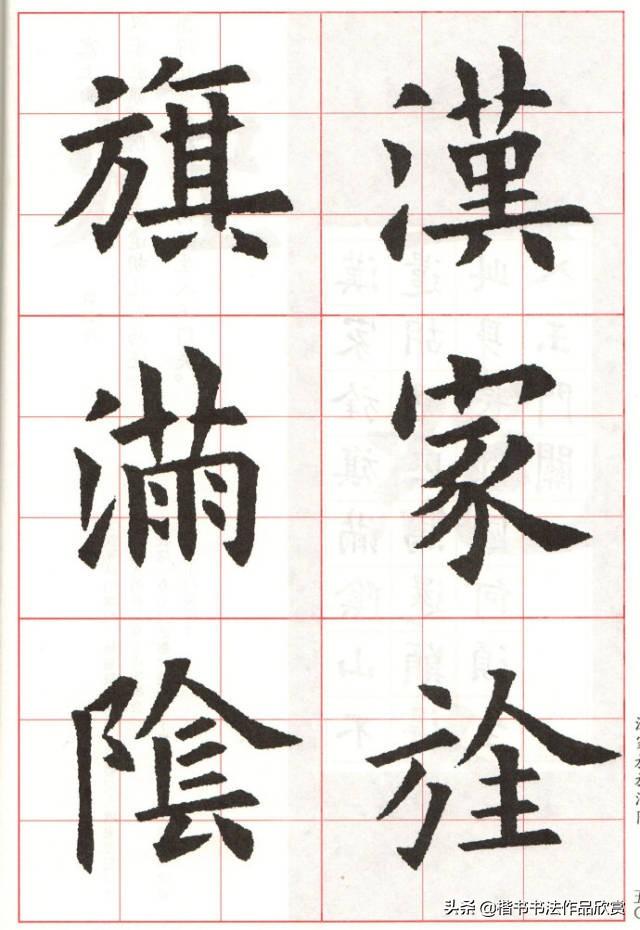 漢家旌
旗滿陰
头条 @楷书书法作品欣赏